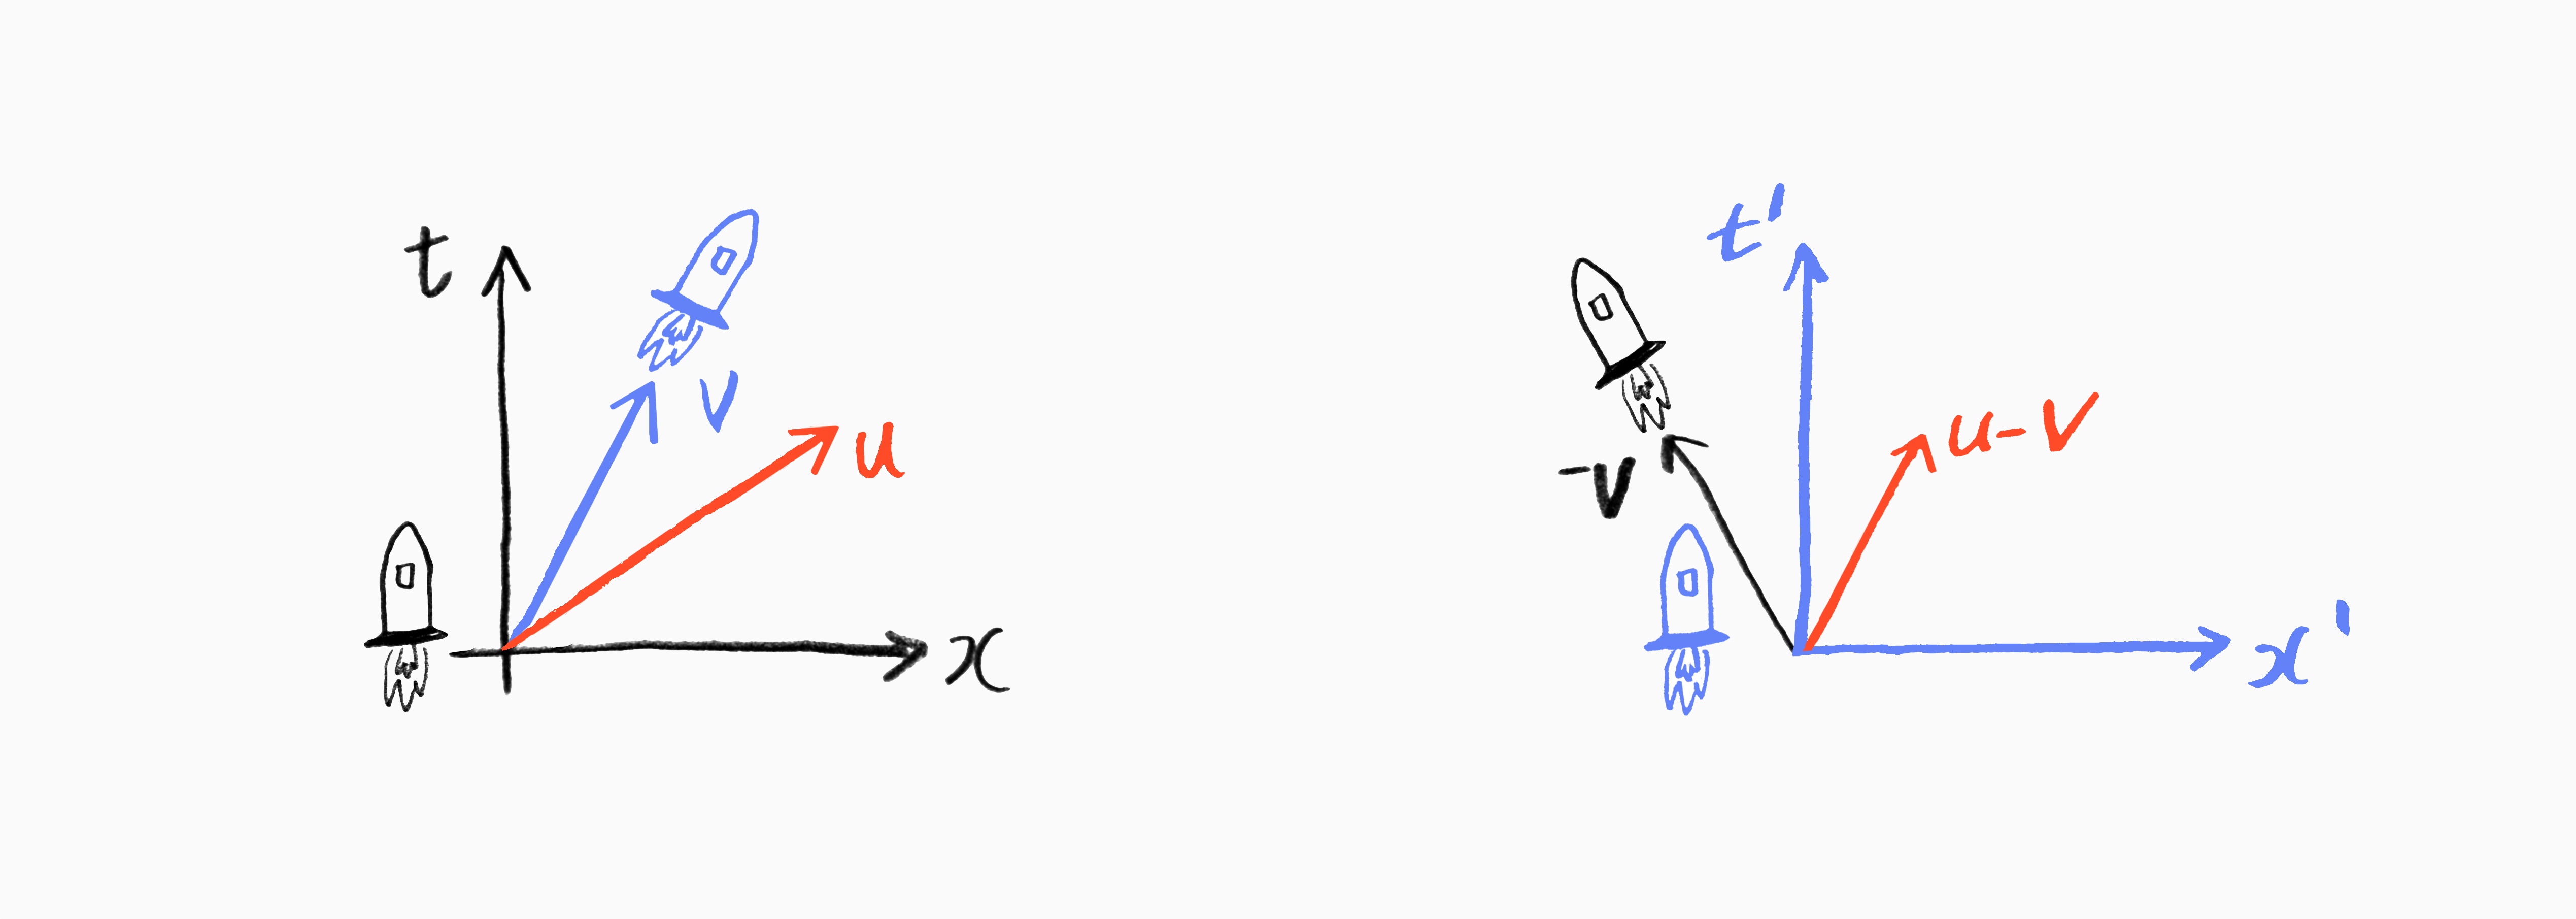 t
v
u
x
t'
-v
u-v
x'